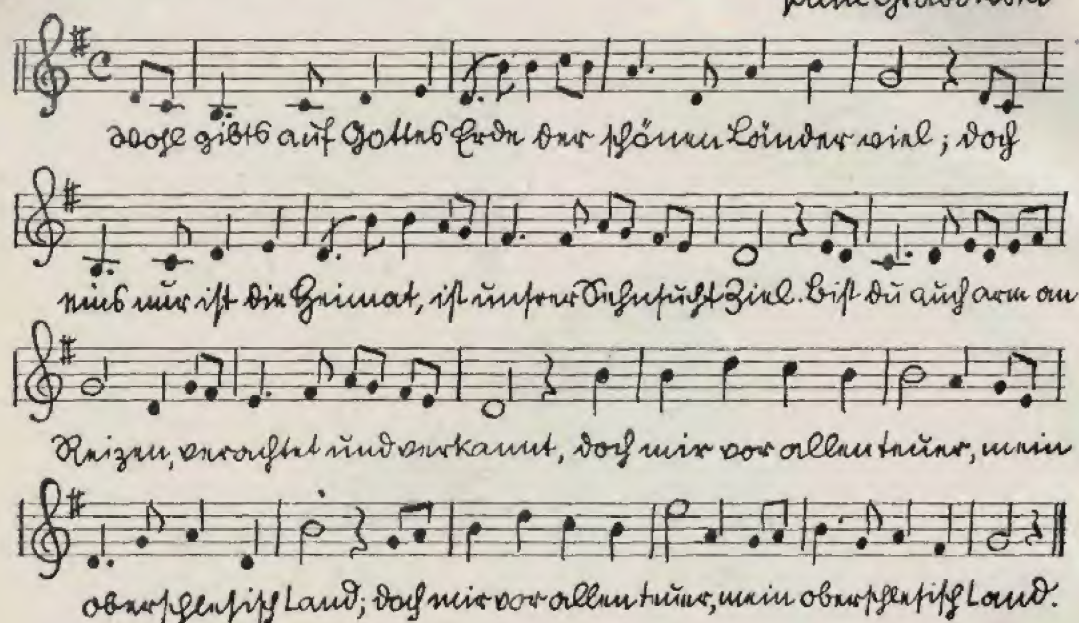 Wohl gibts auf Gottes Erde der schönen Länder viel; doch
eins nur ist die Heimat, ist unsrer Sehnsucht Ziel. Bist du auch arm an
Reizen, verachtet und verkannt, doch mir vor allen teuer, mein
oberschlesisch Land; doch mir vor allen teuer, mein oberschlesisch Land.